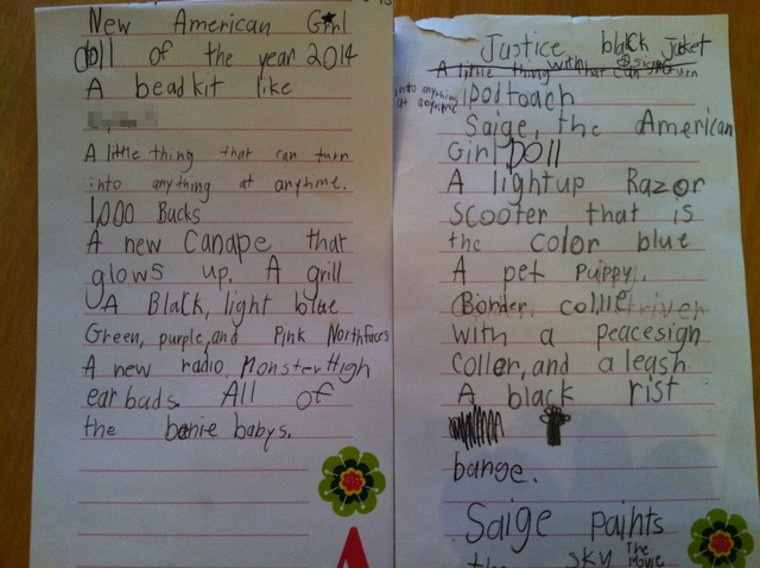 New American Girl
doll of the year 2014
A bead kit like
A little thing that can turn
into any thing at anytime.
1,000 Bucks
A new Canape that
glows up. A grill
A Black, light blue
Green, purple, and Pink Northfaces
A new radio, Monster High
ear buds. All of
the benie babys.
Justice black Jacket
with Design
A little thing that can turn
into anything
at anytime
ipod toach
Saige, the American
Girl Doll
A light up Razor
Scooter that is
the color blue
A pet Puppy.
Border collie
with a peacesign
Coller, and a leash.
A black rist
bange.
Saige paints
the sky The
Movie